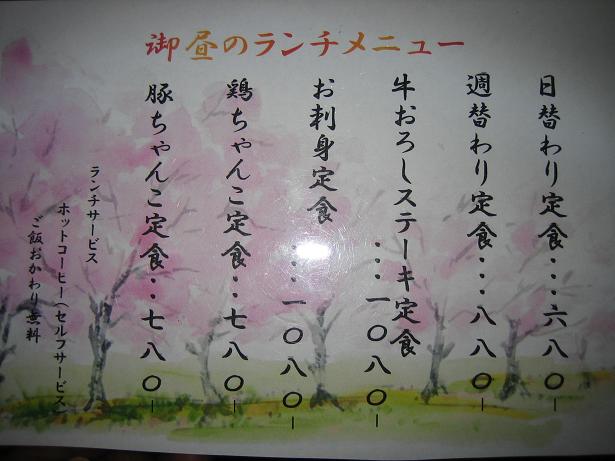 御昼のランチメニュー
日替わり定食・・・六八〇ー
週替わり定食・・・八八〇ー
牛おろしステーキ定食
・・・一〇八〇ー
お刺身定食
・・・一〇八〇ー
鶏ちゃんこ定食・・七八〇ー
豚ちゃんこ定食・・七八〇ー
ランチサービス
ホットコーヒー(セルフサービス)
ご飯おかわり無料